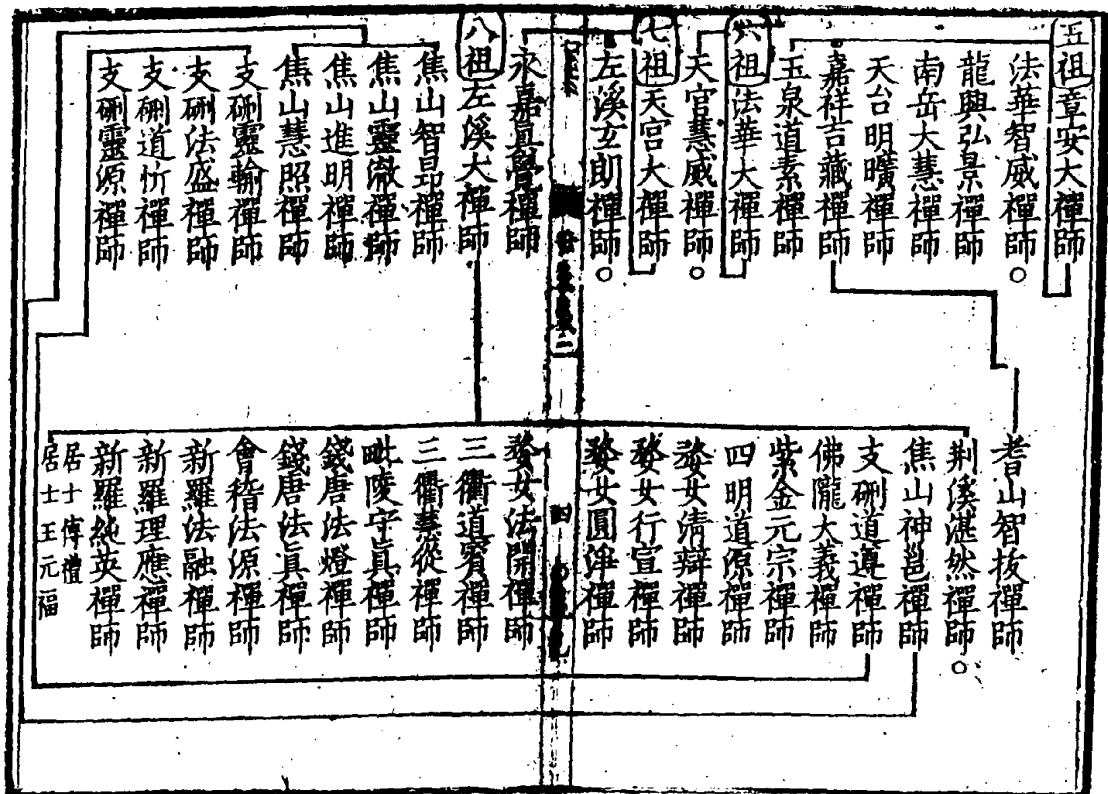 五祖章安大禪師
法華智威禪師○
龍興弘景禪師
南岳大慧禪師
天台明曠禪師
嘉祥吉藏禪師
玉泉道素禪師
六祖法華大禪師
天宮慧威禪師○
七祖天宮大禪師
左溪玄朗禪師○
永嘉眞覺禪師
八祖左溪大禪師
焦山智昂禪師
焦山靈徹禪師
焦山進明禪師
焦山慧照禪師
支硎靈輸禪師
支硎法盛禪師
支硎道忻禪師
支硎靈源禪師
耆山智拔禪師
荆溪湛然禪師○
焦山神邕禪師
支硎道遵禪師
佛隴大義禪師
紫金元宗禪師
四明道源禪師
婺女清辯禪師
婺女行宣禪師
婺女圓淨禪師
四
婺女法開禪師
三衢道賓禪師
三衢慧從禪師
毗陵守眞禪師
錢唐法燈禪師
錢唐法眞禪師
會稽法源禪師
新羅法融禪師
新羅理應禪師
新羅純英禪師
居士傅禮
居士王元福